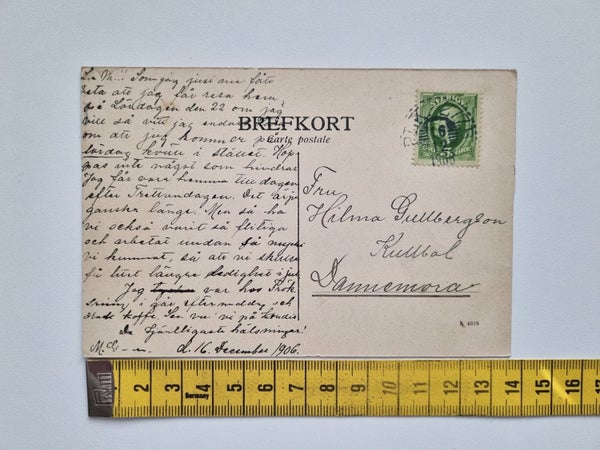 jag får resa hem
på Lördagen den 22 om jag
vill så vitt jag
om att jag kommer på
lördag kväll i stället. Hop-
pas inte något som hindrar
Jag får vara hemma till dagen
efter Trettondagen. Det är ju
ganska länge. Men så ha
vi också varit så flitiga
och arbetat undan så mycket
vi kunnat, så att vi skulle
få litet längre ledighet i jul
Jag var hos Frök
i går eftermiddag och
kaffe
De hjärtligaste hälsningar!
M. G-n. d. 16. December 1906.
BREFKORT
Carte postale
SVERIGE
Fru
Hilma Gullbergson
Dannemora
K 4076
1 2 3 4 5 6 7 8 9 10 11 12 13 14 15 16 17
Germany